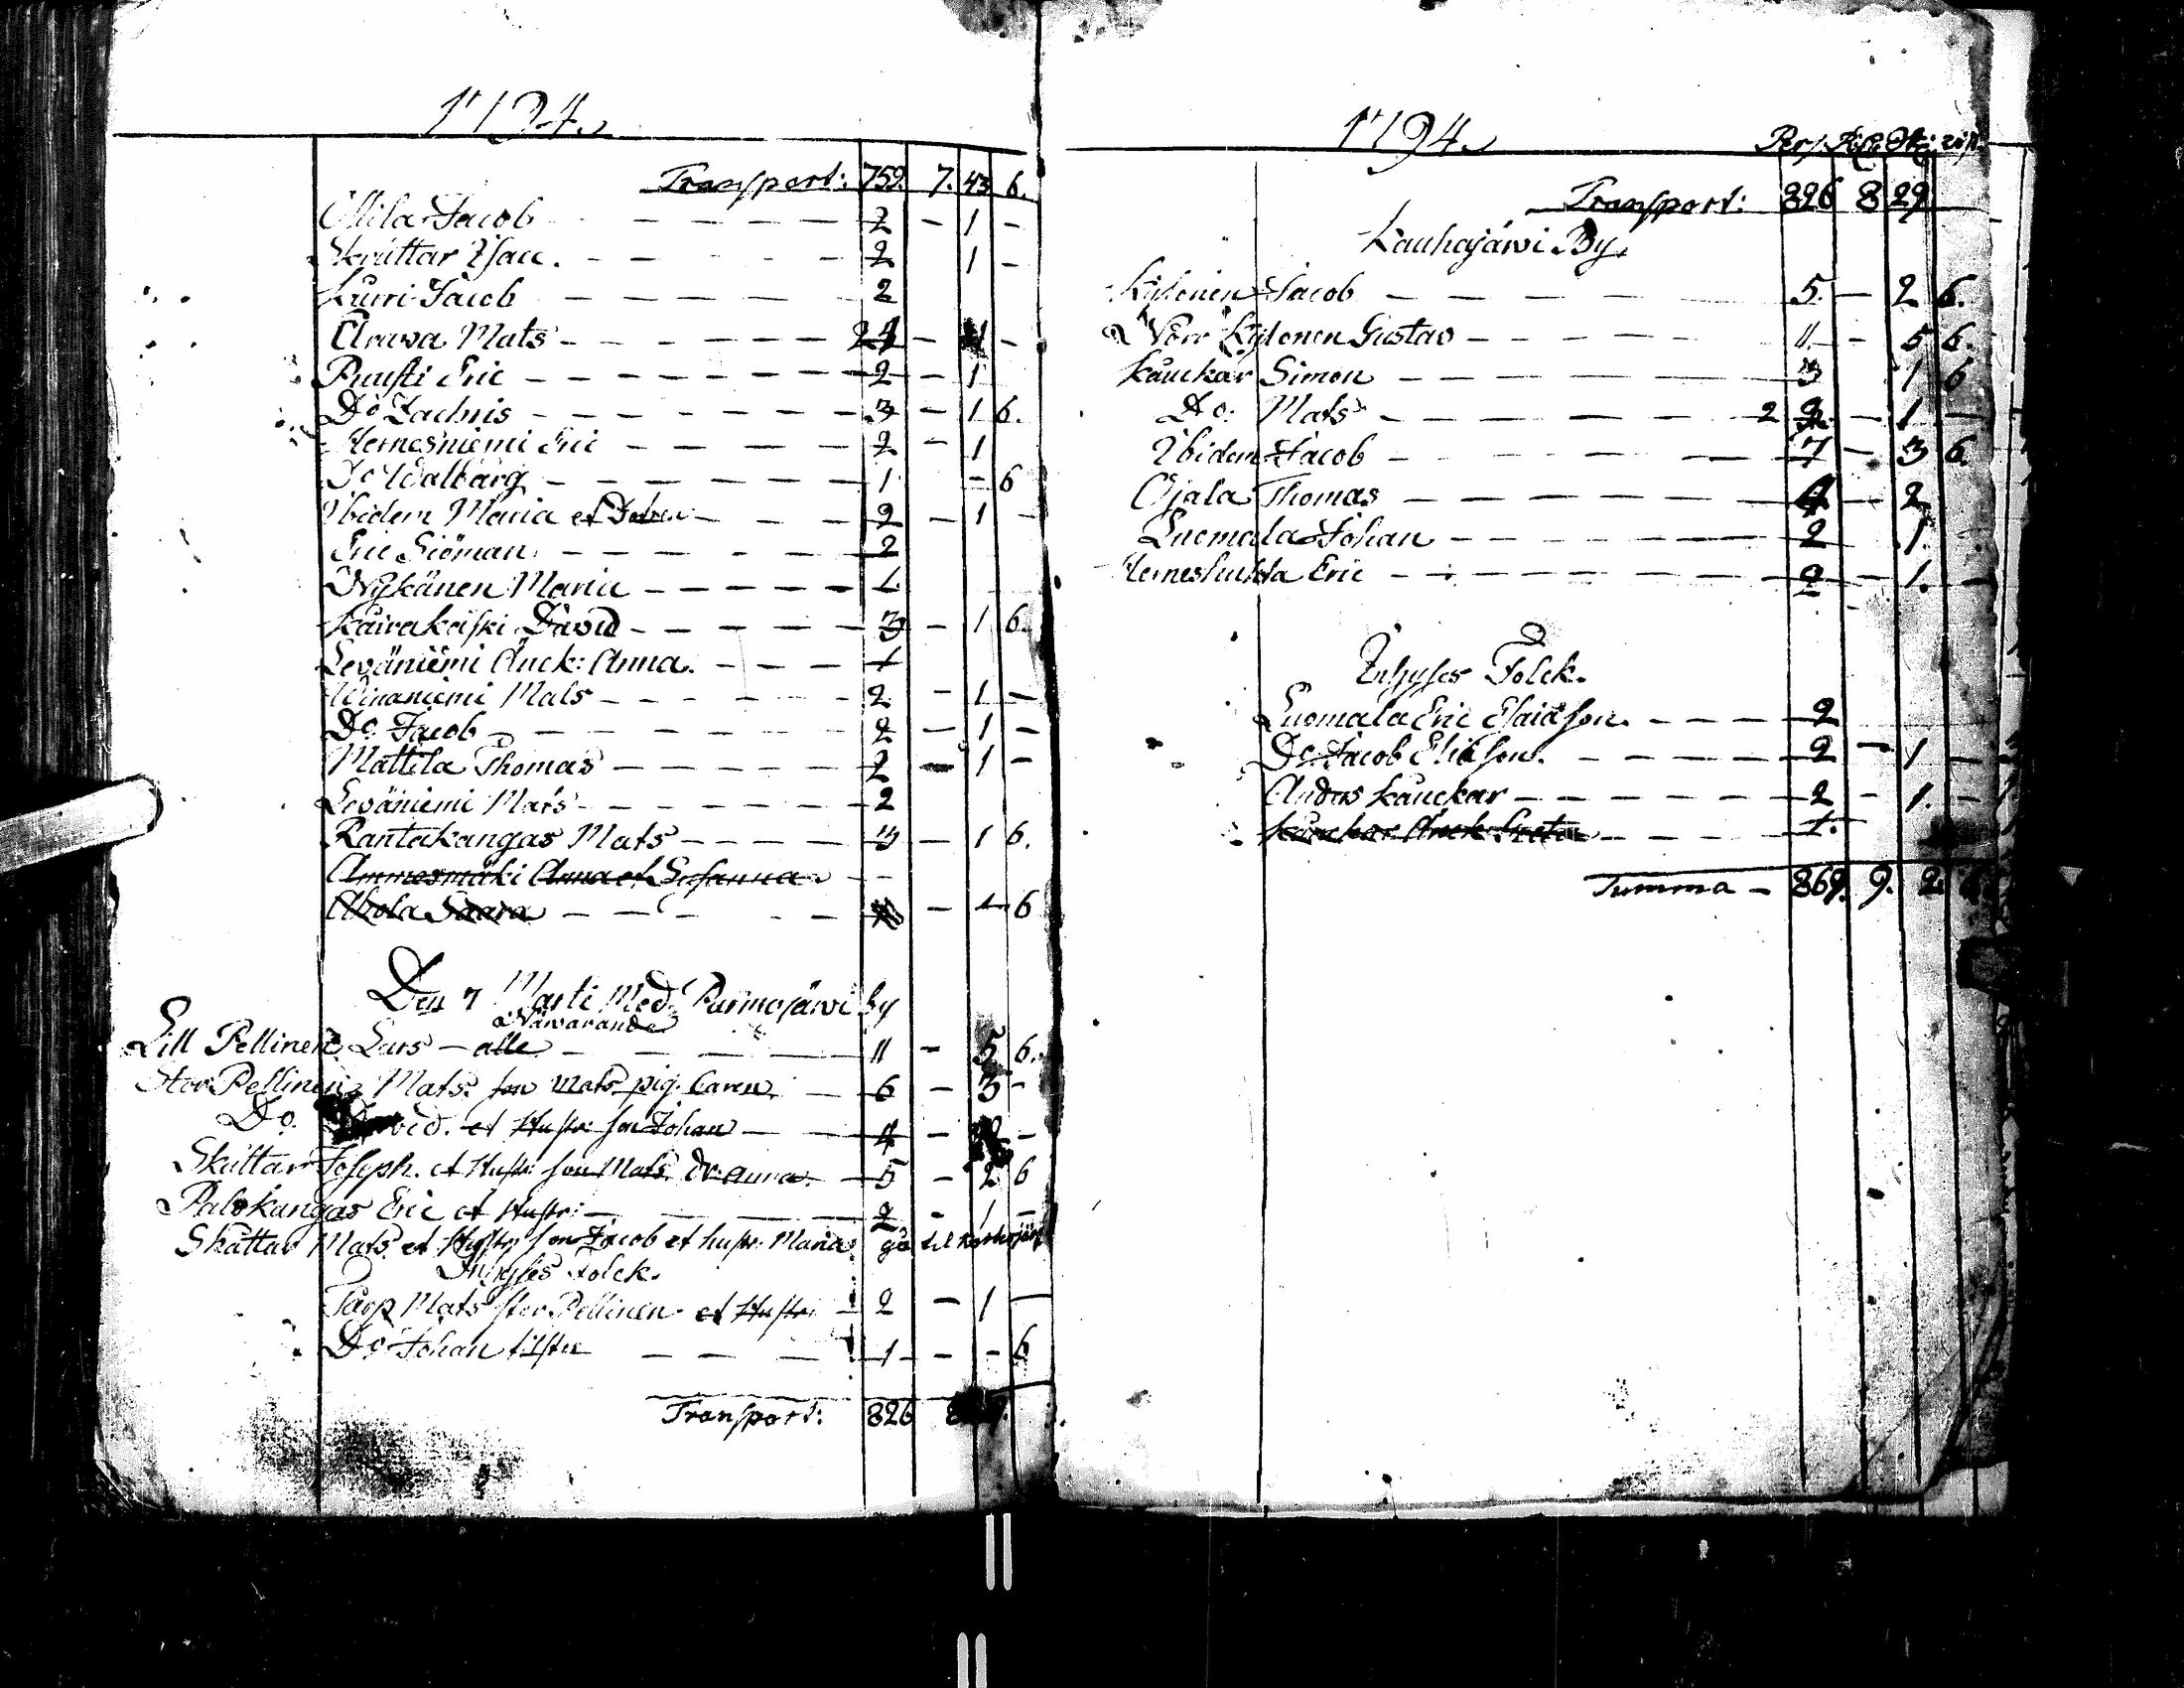 1794.
Transport: 759. 7. 43 6.
Ollila Jacob — — — — — 2 — 1 —
Skruttar Isac. — — — — 2 1 —
Kurri Jacob — — — — — 2
Arawa Mats — — — — — 2 — 1 —
Puusti Eric — — — — — — 2 — 1
Do Zachris — — — — — — 3 — 1 6.
Hernesniemi Eric — — — — 2 — 1
Do Walbärg — — — — — 1 — 6
Ibidem Maria et — — 2 — 1 —
Eric Siöman — — — — — 2
Nykänen Maria — — — — 1.
Kairakoski David — — — — — 3 — 1 6.
Leväniemi Änck: Anna. — — — 1
Mats — — — — — 2 — 1 —
Do. Jacob — — — — — 2 — 1 —
Mattila Thomas — — — — — 2 — 1 —
Leväniemi Mats — — — — — — 2
Rantakangas Mats — — — — 3 — 1 6.
Ammesmäki Anna et Susanna — —
Saara — — — — — — 6
Den 7 Marti Med Purmojärwi by
Närwarande
Lill Pellinen Lars — alle — — — — 11 — 5 6.
Stor Pellinen Mats. son Mats pig. Caren — 6 — 3 —
Do. David. et Hustr: son Johan — — 4 — —
Skuttar Joseph. et Hustr: son Mats. dr. Anna. — 5 — 2 6
Palokangas Eric et Hustr: — — — — 2 — 1 —
Skuttar Mats et Hustr son Jacob et hustr: Maria gå til
Inhyses Folck.
Mats stor Pellinen et Hustr: — 2 — 1 —
Do Johan — — — 1 — — 6
Transport: 826
1794.
Pers
Transport: 826 8 29
Kauhajärwi By.
Kytonen Jacob — — — — — 5. — 2 6.
Nörr Kytonen Gustav — — — — — 11. — 5 6.
Kauckar Simon — — — — — 3 1 6
Do. Mats — — — — — 2 — 1 —
Ibidem Jacob — — — — — 7 — 3 6.
Ojala Thomas — — — — — 4 — 2
Luomala Johan — — — — — 2 1.
Herneshuhta Eric — — — — — 2 — 1. —
Inhyses Folck.
Luomala Eric Esaiason. — — — — 2
Do. Jacob Eliason. — — — — 2 — 1 —
Anders Kauckar — — — — — 2 — 1. —
Kauckar Änck: Greta — — — — 1.
Summa — 869. 9. 2.